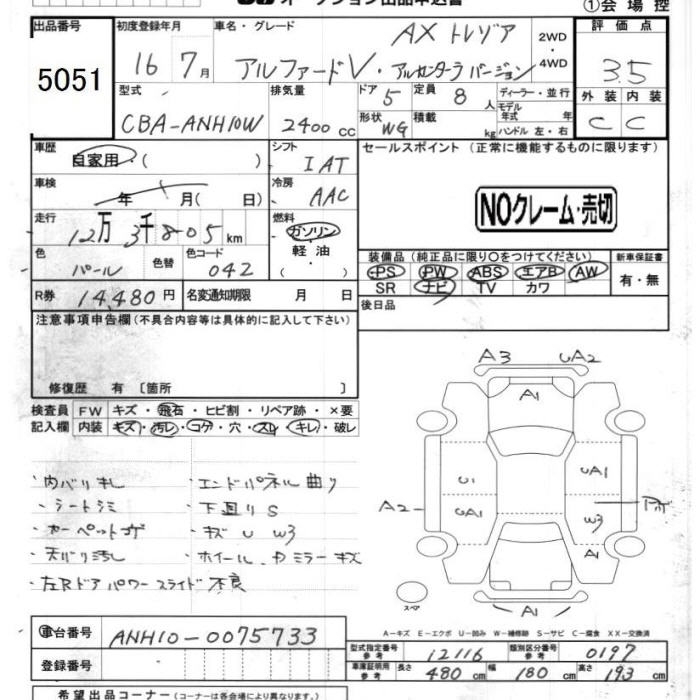 ①会場控
出品番号 5051
初度登録年月 16 7月
車名・グレード AX トレゾア
アルファードV・アルカンターラバージョン
2WD・4WD
評価点 3.5
外装 内装
C C
型式 CBA-ANH10W
排気量 2400cc
ドア 5
定員 8人
形状 WG
積載 kg
ディーラー・並行
モデル年式 年
ハンドル 左・右
車歴 自家用・( )
シフト IAT
セールスポイント (正常に機能するものに限ります)
車検 年 月( 日)
冷房 AAC
NOクレーム・売切
走行 12万3千805km
燃料 ガソリン・軽油
色 パール
色替
色コード 042
( )
装備品 (純正品に限り○をつけてください)
新車保証書
PS PW ABS エアB AW
有・無
SR ナビ TV カワ
R券 14,480円
名変通知期限 月 日
後日品
注意事項申告欄(不具合内容等は具体的に記入して下さい)
修復歴 有 〔箇所 〕
検査員記入欄
FW キズ・飛石・ヒビ割・リペア跡・×要
内装 キズ・汚レ・コゲ・穴・スレ・キレ・破レ
・内バリキレ ・エンドパネル曲り
・シートシミ ・下廻りS
・カーペットコゲ ・キズ U W3
・天バリ汚し ・ホイール、Dミラーキズ
・左Rドアパワースライド不良
A3 UA2
A1
U UA1
A2
UA1 W3
A1
スペア
A1
A−キズ E−エクボ U−凹み W−補修跡 S−サビ C−腐食 XX−交換済
車台番号 ANH10-0075733
登録番号
型式指定番号 参考 12116
類別区分番号 参考 0197
車庫証明用 参考 長さ 480cm 幅 180cm 高さ 193cm
希望出品コーナー(コーナーは各会場により異なります。)